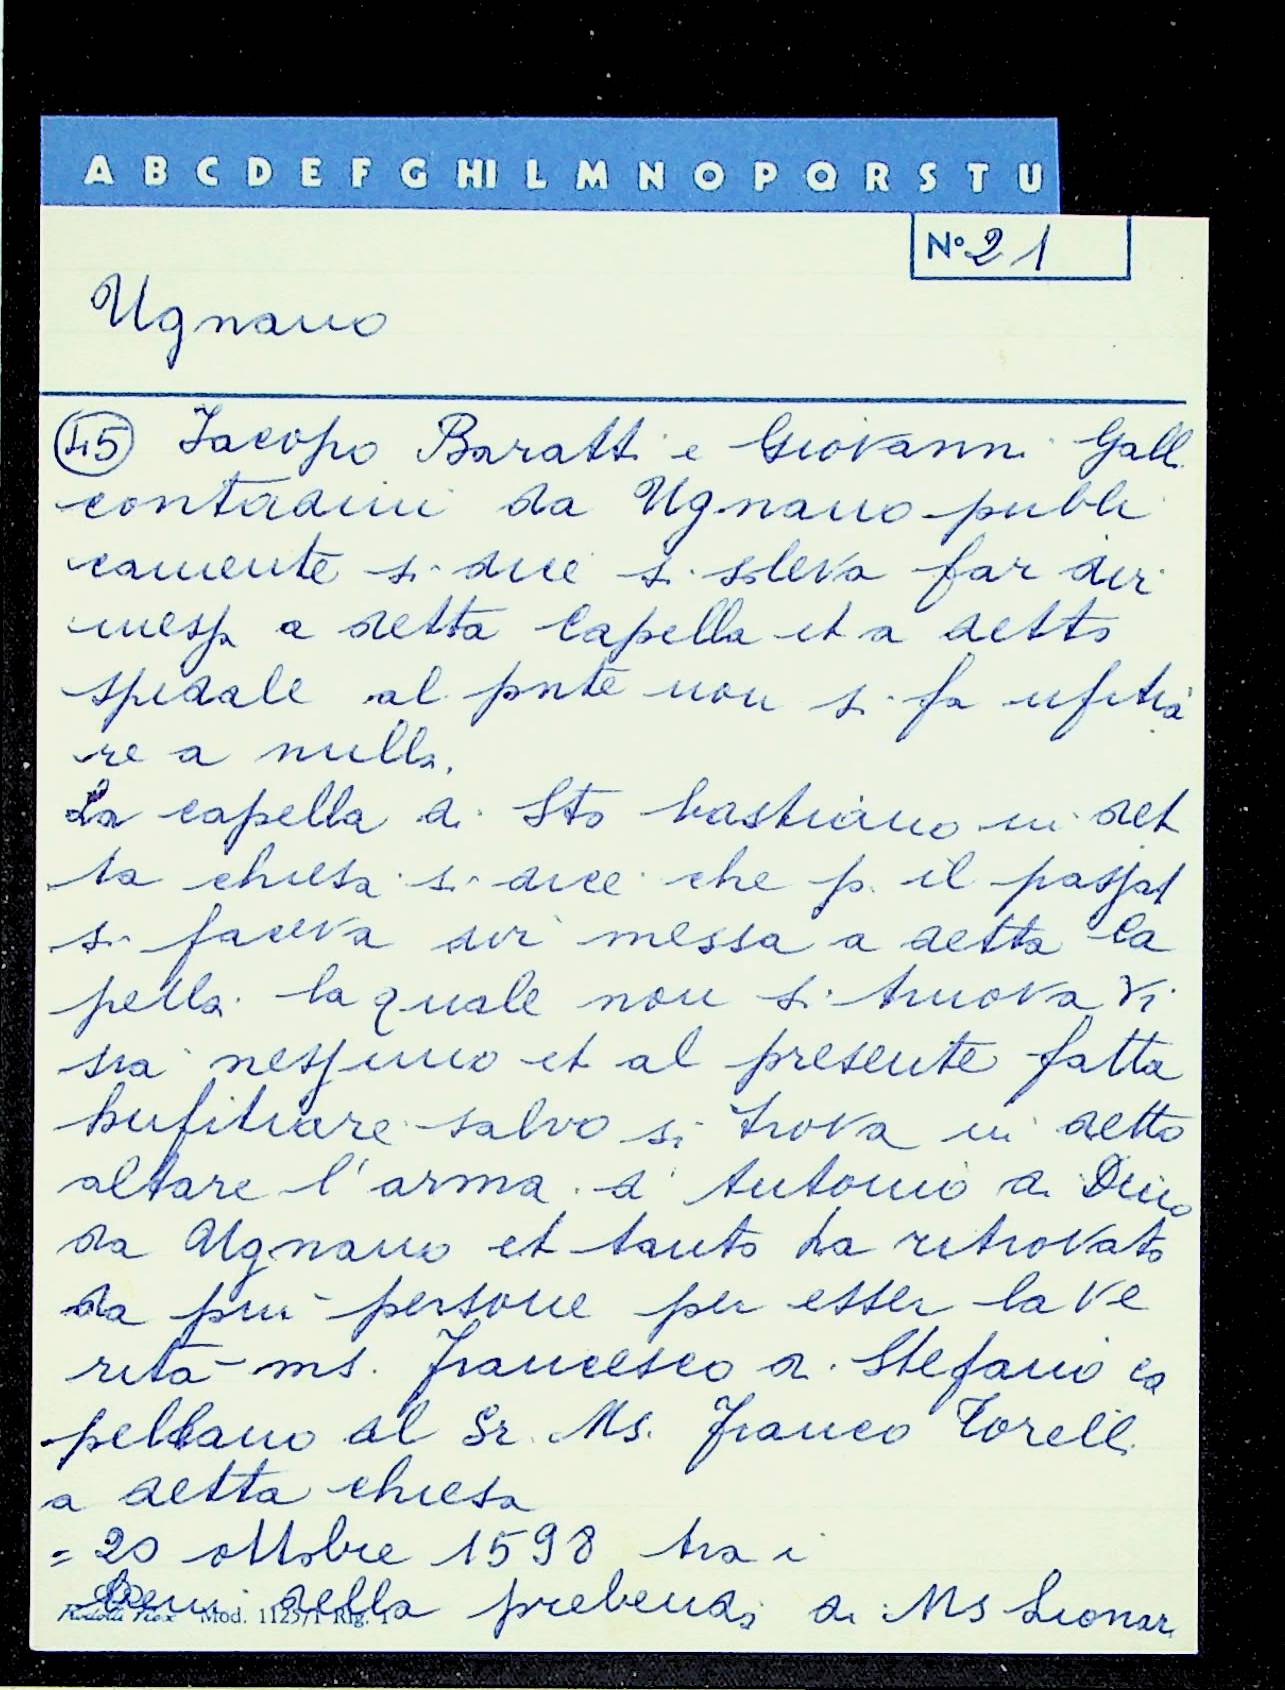 A B C D E F G HI L M N O P Q R S T U
N° 21
Ugnano
45 Jacopo Baratti e Giovanni Galli
contadini da Ugnano publi
camente si dice si soleva far dir
messa a detta Capella et a detto
spedale al pnte non si fa ufitia
re a nulla.
La capella di Sto bastiano in det
ta chiesa si dice che p. il passat
si faceva dir messa a detta Ca
pella la quale non si truova vi
sia nessuno et al presente fatta
hufitiare salvo si trova in detto
altare l'arma d'Antonio di Dino
da Ugnano et tanto ha ritrovato
da più persone per esser la ve
rità ms. Francesco di Stefano ca
pellano al Sr. Ms. Franco Torelli
a detta chiesa
= 20 ottobre 1598 tra i
beni della prebenda di Ms Lionar
Mod. 1125/1 Rig. 1